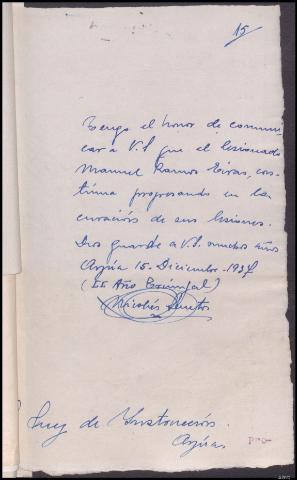 15
Tengo el honor de comuni
car a V.S que el lesionado
Manuel Ramos Eiras, con-
tinua progresando en la
curación de sus lesiones.
Dios guarde a V.S. muchos años
Arzúa 15-Diciembre-1937
(II Año Triunfal)
Nicolás
Juez de Instrucción
Arzúa